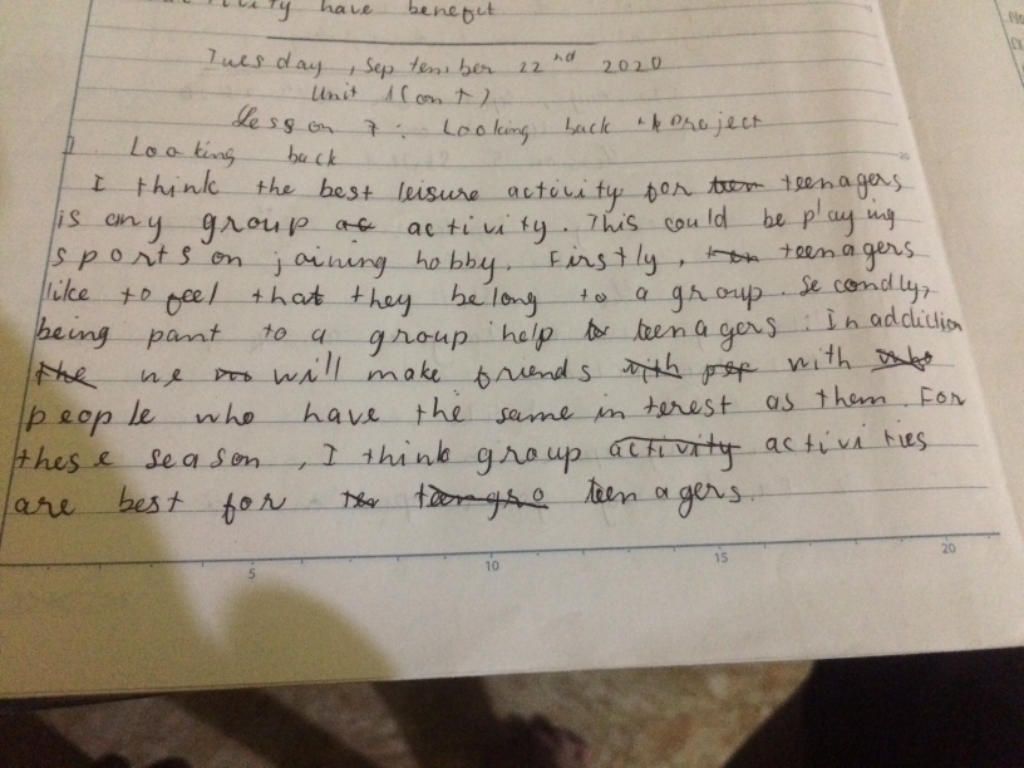 have benefit
Tuesday, September 22nd 2020
Unit 1 (cont)
Lesson 7: Looking back & Project
I Looking back
I think the best leisure activity for teenagers
is any group activity. This could be playing
sports on joining hobby. Firstly, teenagers
like to feel that they belong to a group. Secondly,
being pant to a group help teenagers. In addiction
we will make friends with
people who have the same interest as them. For
these season, I think group activity activities
are best for teenagers.
5 10 15 20